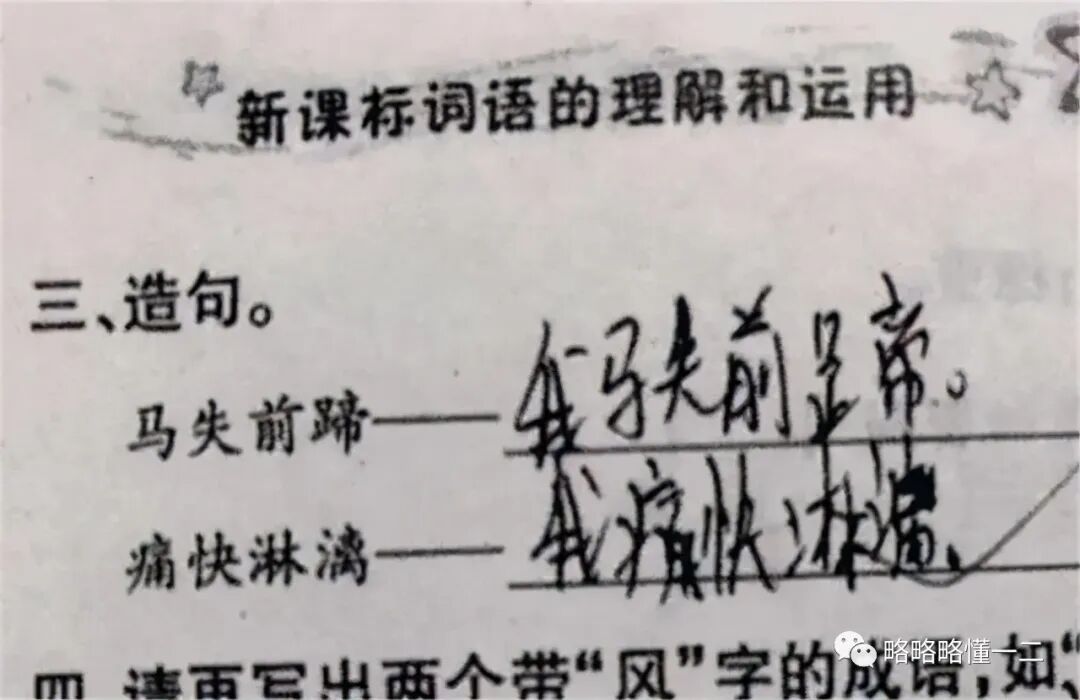 新课标词语的理解和运用
三、造句。
马失前蹄——我马失前蹄。
痛快淋漓——我痛快淋漓。
四、请再写出两个带“风”字的成语,如“
略略略懂一二